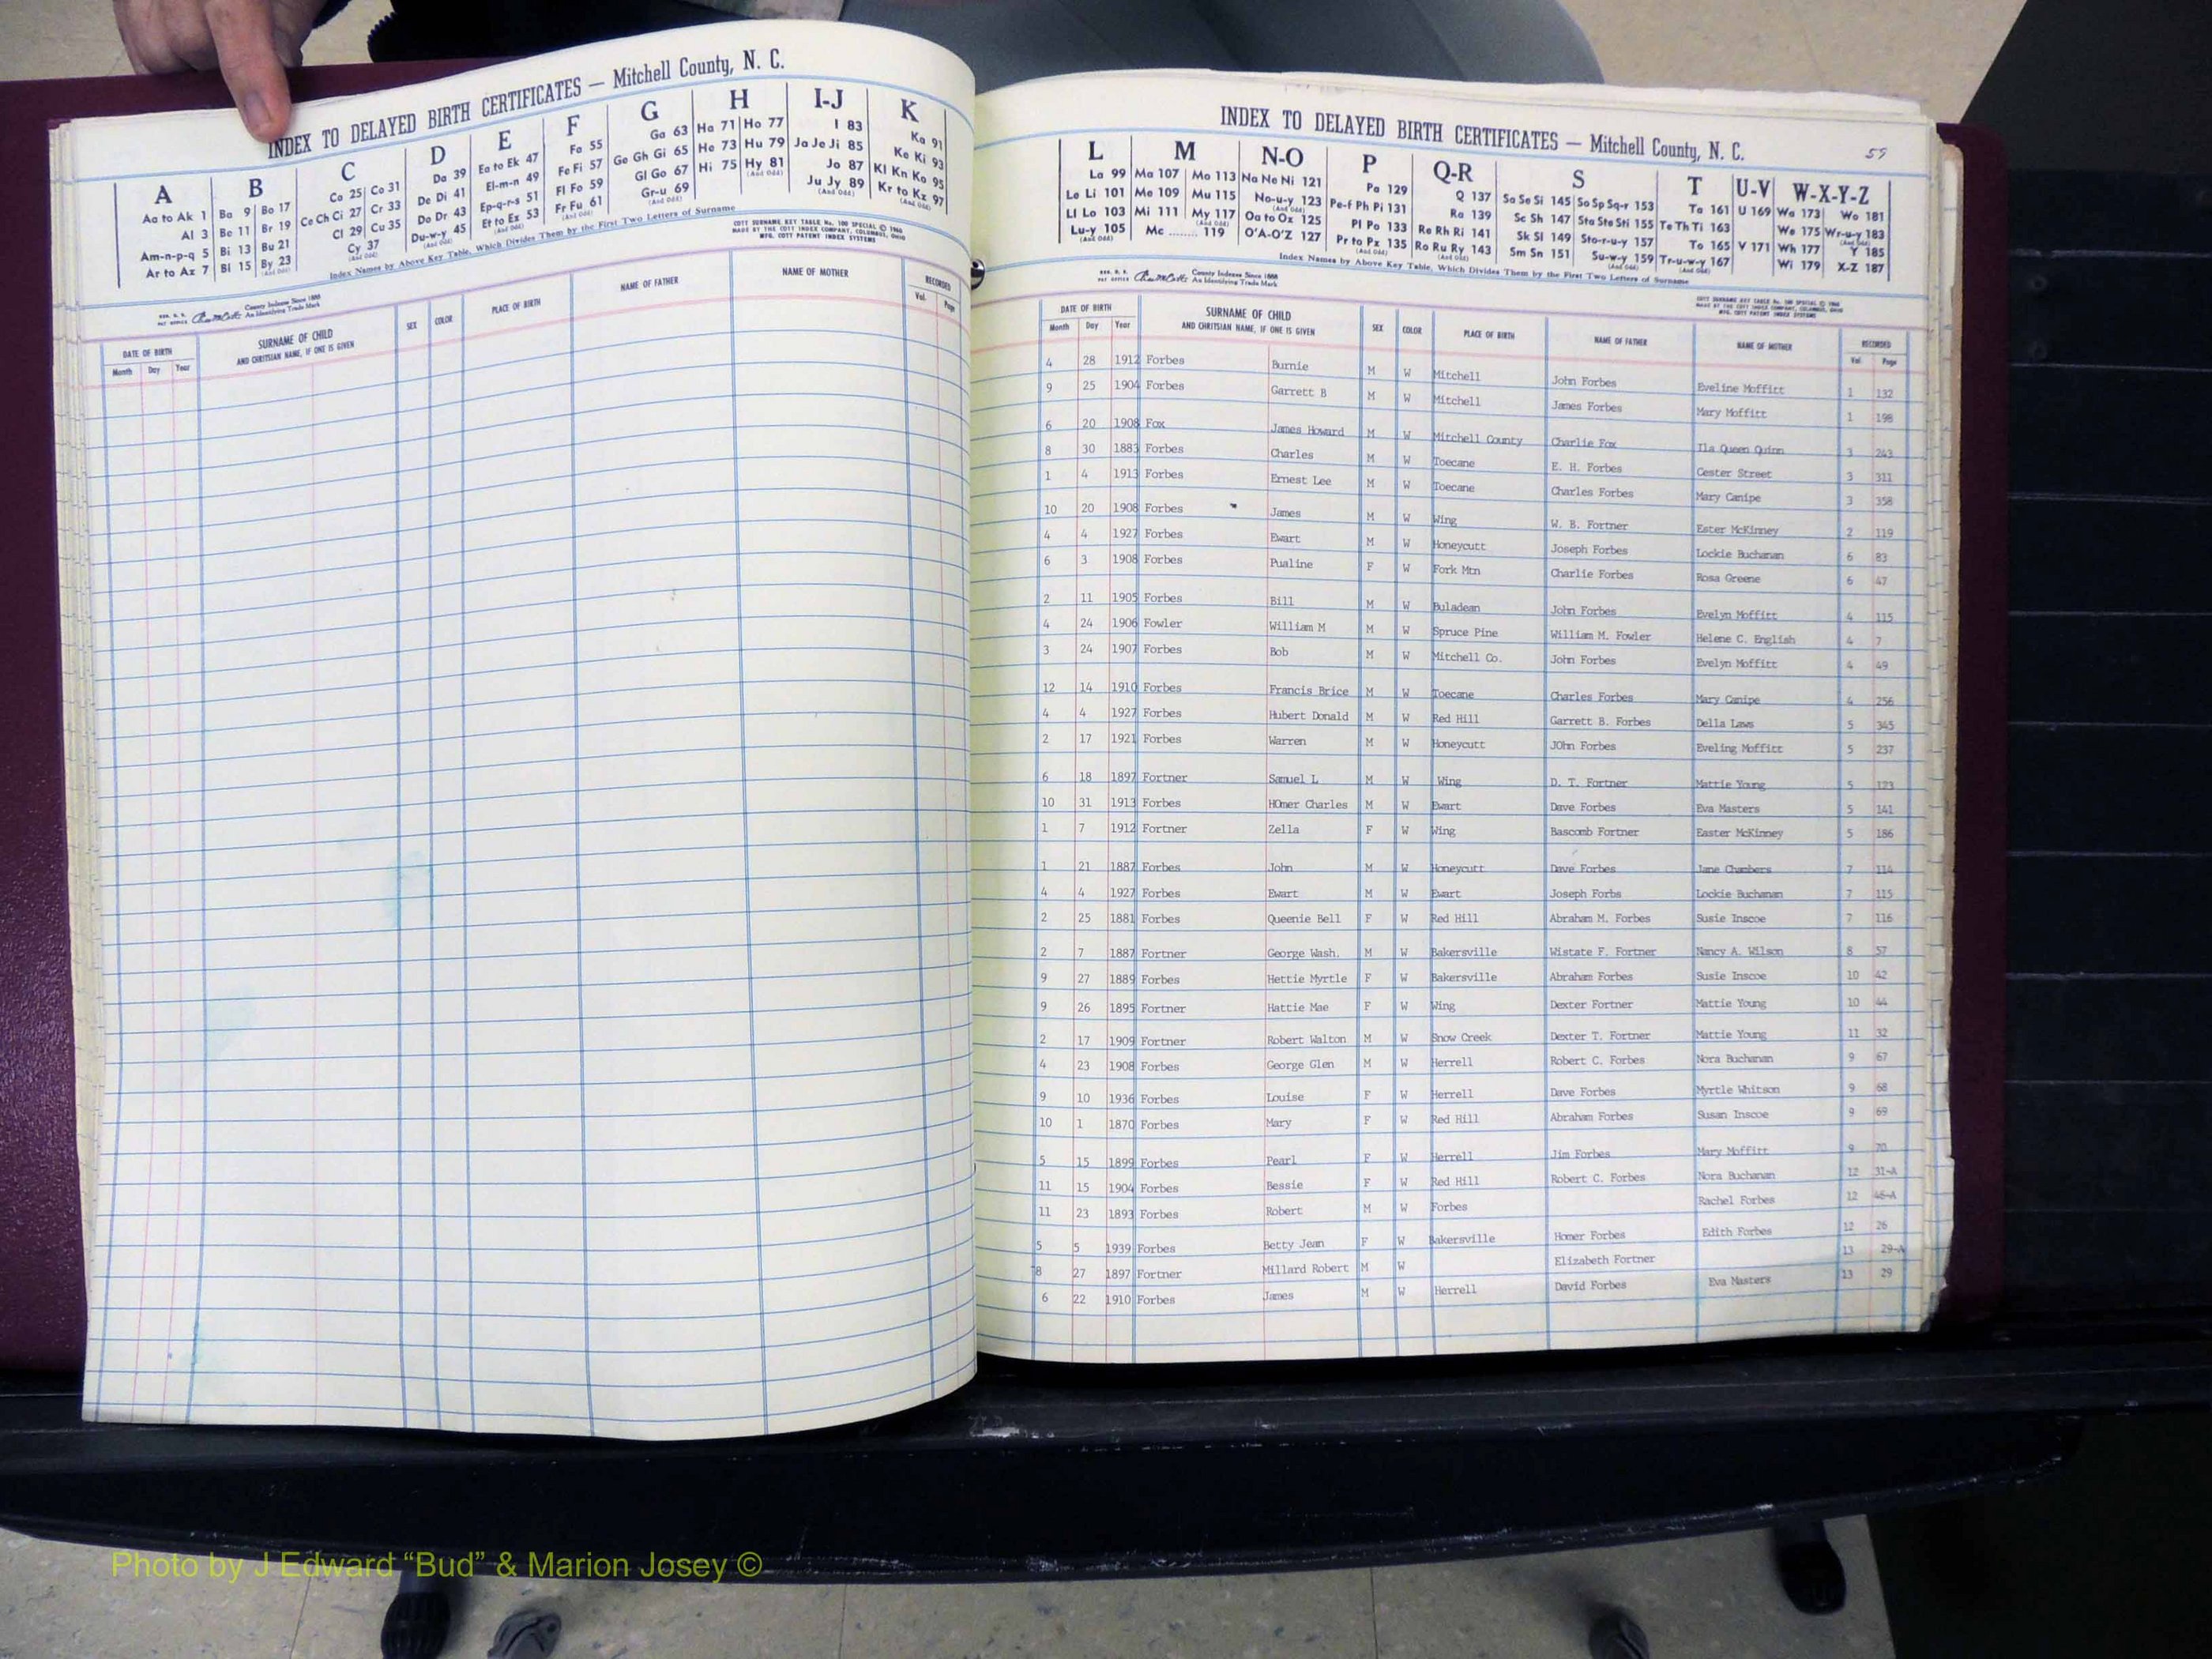 INDEX TO DELAYED BIRTH CERTIFICATES — Mitchell County, N. C.
A B C D E F G H I-J K
Aa to Ak 1 Ba 9 Bo 17 Ca 25 Co 31 Da 39 Ea to Ek 47 Fa 55 Ga 63 Ha 71 Ho 77 I 83 Ka 91
Al 3 Be 11 Br 19 Ce Ch Ci 27 Cr 33 De Di 41 El-m-n 49 Fe Fi 57 Ge Gh Gi 65 He 73 Hu 79 Ja Je Ji 85 Ke Ki 93
Am-n-p-q 5 Bi 13 Bu 21 Cl 29 Cu 35 Do Dr 43 Ep-q-r-s 51 Fl Fo 59 Gl Go 67 Hi 75 Hy 81 Jo 87 Kl Kn Ko 95
Ar to Az 7 Bl 15 By 23 Cy 37 Du-w-y 45 Et to Ex 53 Fr Fu 61 Gr-u 69 Ju Jy 89 Kr to Kz 97
Index Names by Above Key Table, Which Divides Them by the First Two Letters of Surname
COTT SURNAME KEY TABLE No. 100 SPECIAL © 1960
MADE BY THE COTT INDEX COMPANY, COLUMBUS, OHIO
MFG. COTT PATENT INDEX SYSTEMS
County Indexes Since 1888
An Identifying Trade Mark
DATE OF BIRTH SURNAME OF CHILD SEX COLOR PLACE OF BIRTH NAME OF FATHER NAME OF MOTHER RECORDED
Month Day Year AND CHRITSIAN NAME, IF ONE IS GIVEN Vol. Page
INDEX TO DELAYED BIRTH CERTIFICATES — Mitchell County, N. C. 59
L M N-O P Q-R S T U-V W-X-Y-Z
La 99 Ma 107 Mo 113 Na Ne Ni 121 Pa 129 Q 137 Sa Se Si 145 So Sp Sq-r 153 Ta 161 U 169 Wa 173 Wo 181
Le Li 101 Me 109 Mu 115 No-u-y 123 Pe-f Ph Pi 131 Ra 139 Sc Sh 147 Sta Ste Sti 155 Te Th Ti 163 We 175 Wr-u-y 183
Ll Lo 103 Mi 111 My 117 Oa to Ox 125 Pl Po 133 Re Rh Ri 141 Sk Sl 149 Sto-r-u-y 157 To 165 V 171 Wh 177 Y 185
Lu-y 105 Mc 119 O'A-O'Z 127 Pr to Px 135 Ro Ru Ry 143 Sm Sn 151 Su-w-y 159 Tr-u-w-y 167 Wi 179 X-Z 187
Index Names by Above Key Table, Which Divides Them by the First Two Letters of Surname
County Indexes Since 1888
An Identifying Trade Mark
COTT SURNAME KEY TABLE No. 100 SPECIAL © 1960
MADE BY THE COTT INDEX COMPANY, COLUMBUS, OHIO
MFG. COTT PATENT INDEX SYSTEMS
DATE OF BIRTH SURNAME OF CHILD SEX COLOR PLACE OF BIRTH NAME OF FATHER NAME OF MOTHER RECORDED
Month Day Year AND CHRITSIAN NAME, IF ONE IS GIVEN Vol. Page
4 28 1912 Forbes Burnie M W Mitchell John Forbes Eveline Moffitt 1 132
9 25 1904 Forbes Garrett B M W Mitchell James Forbes Mary Moffitt 1 198
6 20 1908 Fox James Howard M W Mitchell County Charlie Fox Ila Queen Quinn 3 243
8 30 1883 Forbes Charles M W Toecane E. H. Forbes Cester Street 3 311
1 4 1913 Forbes Ernest Lee M W Toecane Charles Forbes Mary Canipe 3 358
10 20 1908 Forbes James M W Wing W. B. Fortner Ester McKinney 2 119
4 4 1927 Forbes Ewart M W Honeycutt Joseph Forbes Lockie Buchanan 6 83
6 3 1908 Forbes Pualine F W Fork Mtn Charlie Forbes Rosa Greene 6 47
2 11 1905 Forbes Bill M W Buladean John Forbes Evelyn Moffitt 4 115
4 24 1906 Fowler William M M W Spruce Pine William M. Fowler Helene C. English 4 7
3 24 1907 Forbes Bob M W Mitchell Co. John Forbes Evelyn Moffitt 4 49
12 14 1910 Forbes Francis Brice M W Toecane Charles Forbes Mary Canipe 4 256
4 4 1927 Forbes Hubert Donald M W Red Hill Garrett B. Forbes Della Laws 5 345
2 17 1921 Forbes Warren M W Honeycutt JOhn Forbes Eveling Moffitt 5 237
6 18 1897 Fortner Samuel L M W Wing D. T. Fortner Mattie Young 5 123
10 31 1913 Forbes HOmer Charles M W Ewart Dave Forbes Eva Masters 5 141
1 7 1912 Fortner Zella F W Wing Bascomb Fortner Easter McKinney 5 186
1 21 1887 Forbes John M W Honeycutt Dave Forbes Jane Chambers 7 114
4 4 1927 Forbes Ewart M W Ewart Joseph Forbs Lockie Buchanan 7 115
2 25 1881 Forbes Queenie Bell F W Red Hill Abraham M. Forbes Susie Inscoe 7 116
2 7 1887 Fortner George Wash. M W Bakersville Wistate F. Fortner Nancy A. Wilson 8 57
9 27 1889 Forbes Hettie Myrtle F W Bakersville Abraham Forbes Susie Inscoe 10 42
9 26 1895 Fortner Hattie Mae F W Wing Dexter Fortner Mattie Young 10 44
2 17 1909 Fortner Robert Walton M W Snow Creek Dexter T. Fortner Mattie Young 11 32
4 23 1908 Forbes George Glen M W Herrell Robert C. Forbes Nora Buchanan 9 67
9 10 1936 Forbes Louise F W Herrell Dave Forbes Myrtle Whitson 9 68
10 1 1870 Forbes Mary F W Red Hill Abraham Forbes Susan Inscoe 9 69
5 15 1899 Forbes Pearl F W Herrell Jim Forbes Mary Moffitt 9 70
11 15 1904 Forbes Bessie F W Red Hill Robert C. Forbes Nora Buchanan 12 31-A
11 23 1893 Forbes Robert M W Forbes Rachel Forbes 12 46-A
5 5 1939 Forbes Betty Jean F W Bakersville Homer Forbes Edith Forbes 12 26
8 27 1897 Fortner Millard Robert M W Elizabeth Fortner 13 29-A
6 22 1910 Forbes James M W Herrell David Forbes Eva Masters 13 29
Photo by J Edward “Bud” & Marion Josey ©